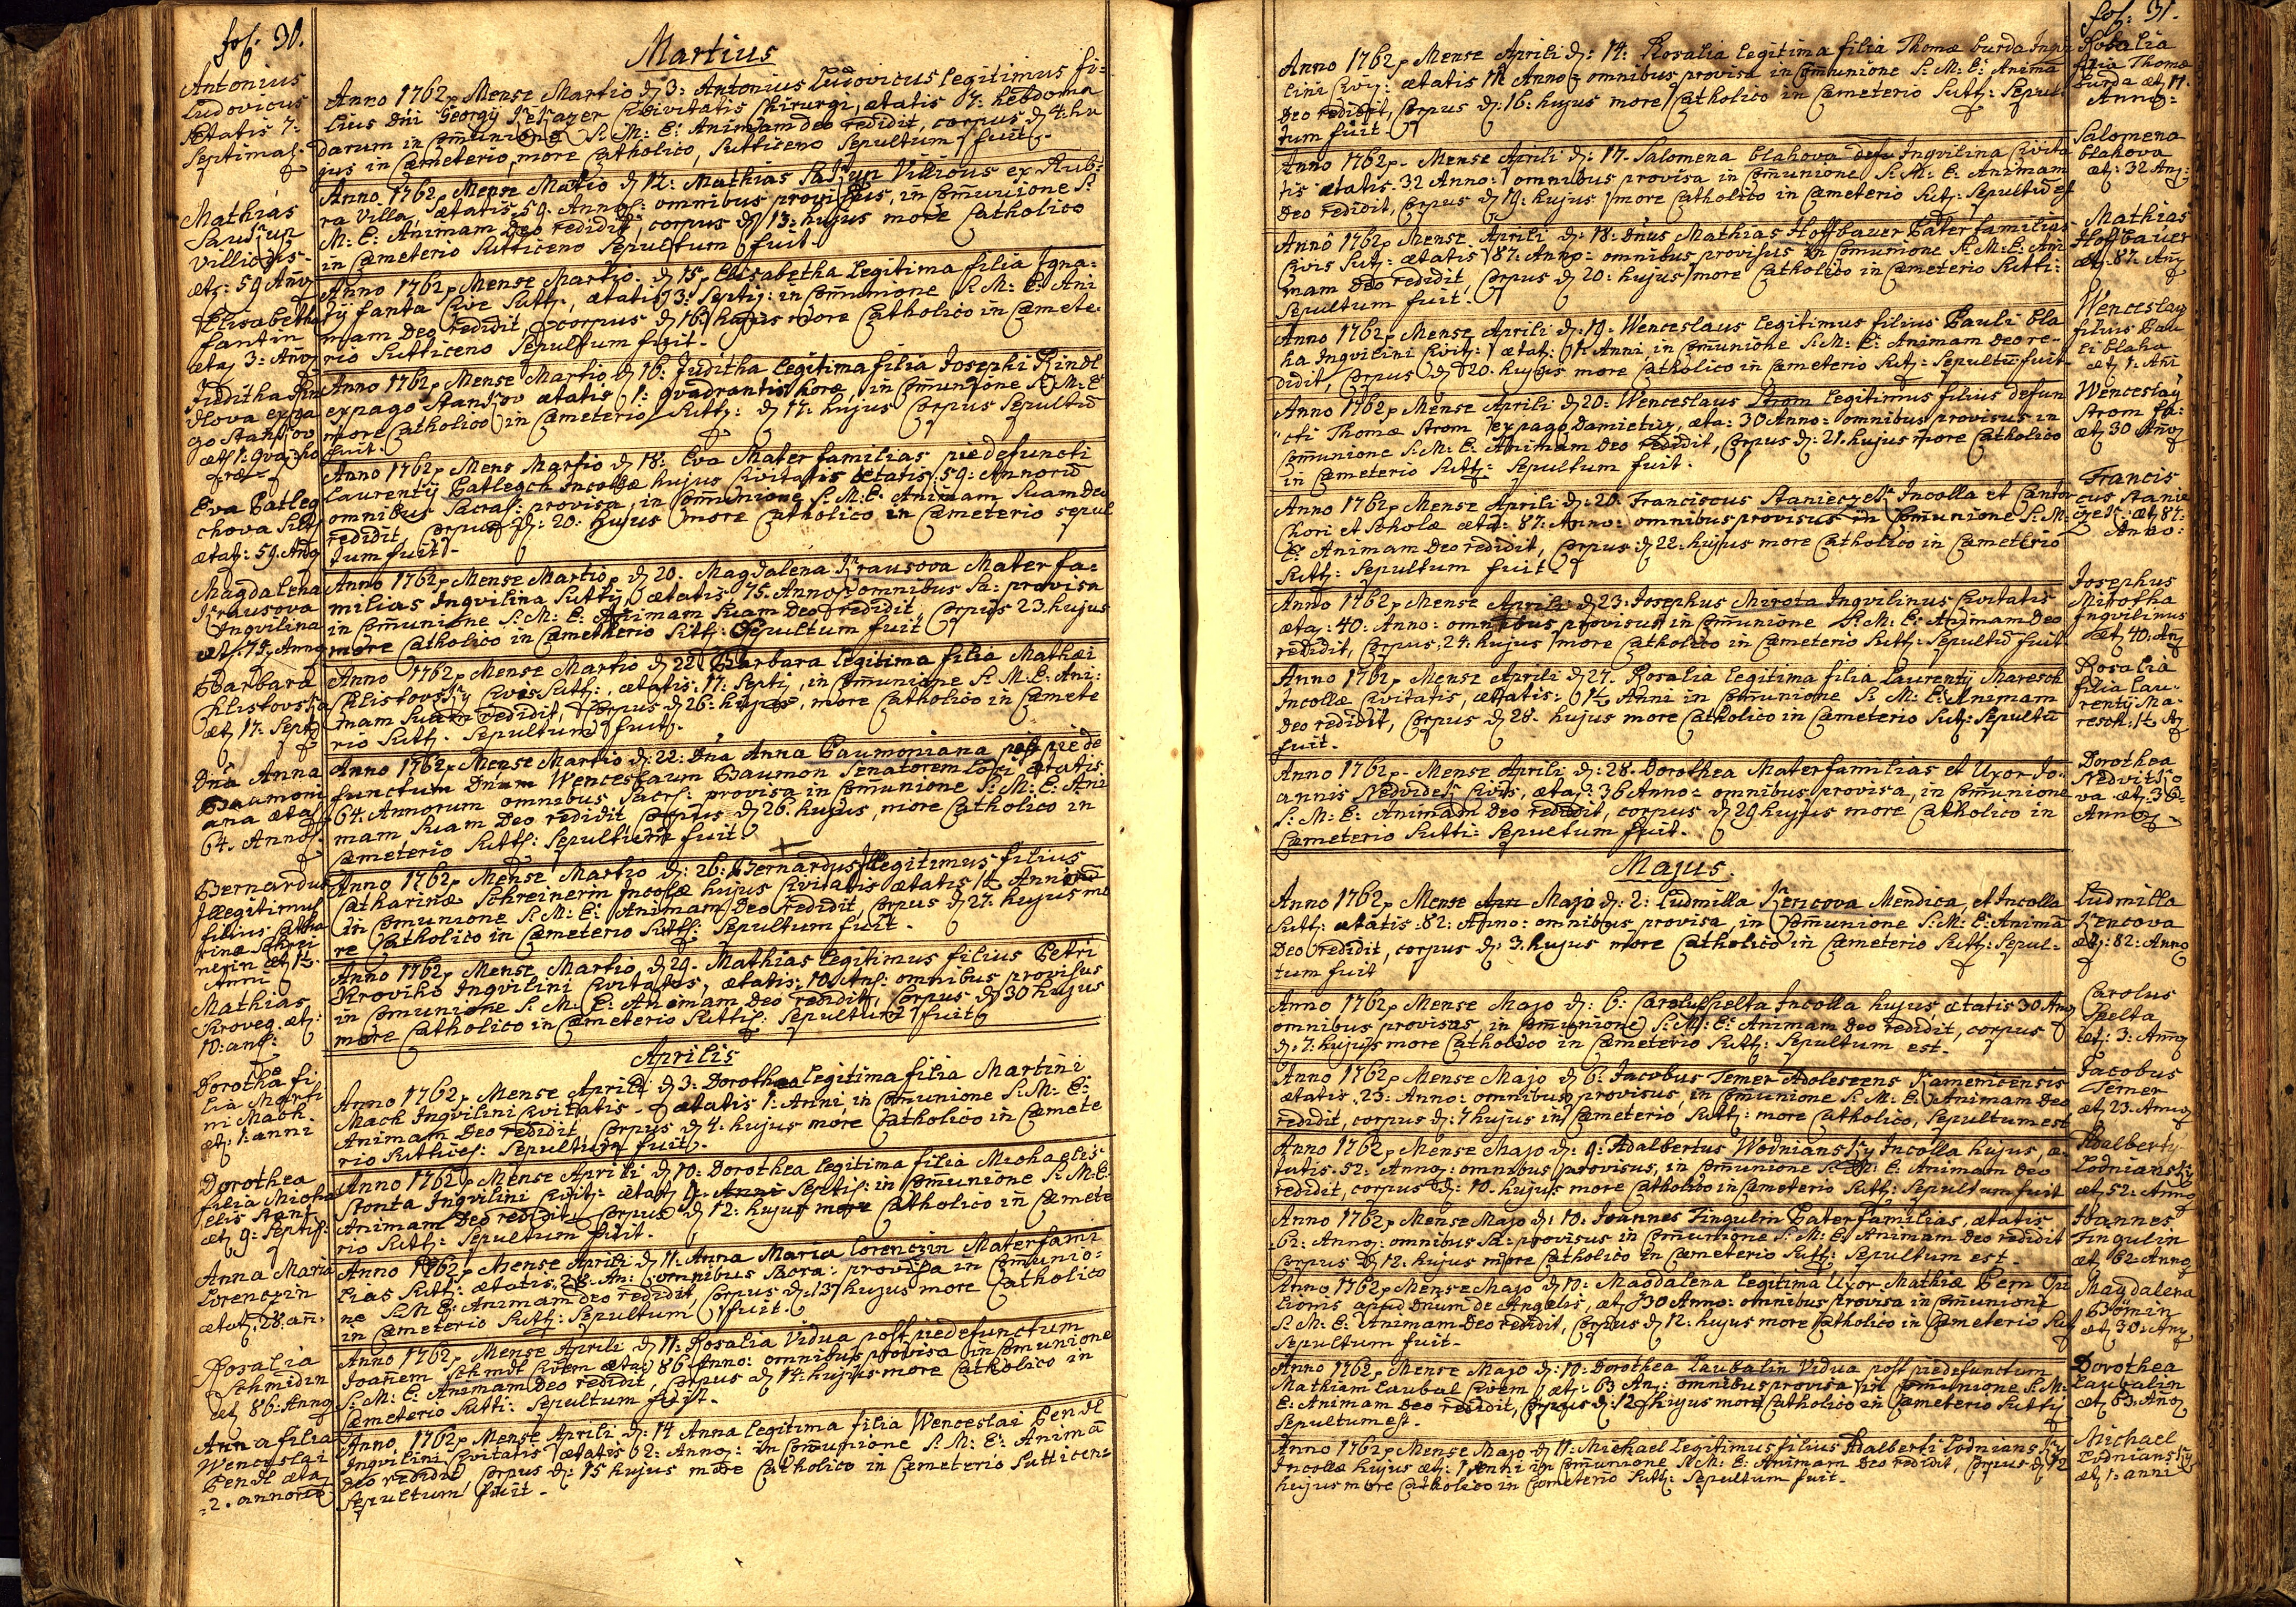 fol: 30.
Martius
Antonius
Ludovicus
Ætatis 7:
Septimal:
Anno 1762 Mense Martio d 3: Antonius Ludovicus legitimus fi:
lius Dni Georgÿ Civitatis Chirurgi, ætatis 7: hebdoma
darum in Com̄unione S: M: E: Animam Deo redidit, corpus d 4: hu
jus in Cæmeterio, more Catholico, Sutticeno Sepultum fuit.
Mathias
Villicus
æt: 59 An̄o
Anno 1762 Mense Martio d 12: Mathias Villicus ex Rub:
ra Villa, ætatis 59. Anno: omnibus provisus, in Com̄unione S:
M: E: Animam Deo redidit, corpus d 13: hujus more Catholico
in Cæmeterio Sutticeno Sepultum fuit
Elisabetha
fantin
æta 3: An̄o
Anno 1762 Mense Martio d 15. Elisabetha legitima filia Igna:
tÿ fanta Cive Sutt:, ætatis 3: Septÿ: in Com̄unione S: M: E: Ani
mam Deo redidit, corpus d 16: hujus more Catholico in Cæmete:
rio Sutticeno Sepultum fuit.
Juditha Rin
dlova ex pa
go
æt: 1: qva: ho
ræ
Anno 1762 Mense Martio d 16. Juditha legitima filia Josephi Rindl
ex pago ætatis 1: qvadrantis horæ, in Com̄unione S: M: E:
more Catholico in Cæmeterio Sutt: d 17: hujus Corpus Sepultū
fuit.
Eva Patleg
chova
ætat: 59. Ano
Anno 1762 Mens Martio d 18: Eva Mater familias piedefuncti
Laurentÿ Patlegch Incolæ hujus Civitatis ætatis: 59: Annorū
omnibus Sacra: provisa, in Com̄unione S: M: E: Animam Suam Deo
redidit, Corpus d: 20: hujus more Catholico in Cæmeterio sepul
tum fuit.
Magdalena
Krausova
Ingvilina
æt: 75. Anno
Anno 1762 Mense Martio, d 20. Magdalena Krausova Mater fa:
milias Ingvilina Suttÿ, ætatis, 75. Anno: omnibus Sa: provisa
in Com̄unione S: M: E: Animam Suam Deo redidit, Corpus 23. hujus
more Catholico in Cæmetherio Sutt: Sepultum fuit
Barbara
Chlistovska
æt, 17. Sept
Anno 1762 Mense Martio d 22. Barbara legitima filia Mathæi
Chlistovskÿ Civis Sutt:, ætatis: 17: Septi, in Com̄unione S: M. E: Ani:
mam Suam redidit, Corpus d 26: hujus, more Catholico in Cæmete
rio Sutt. Sepultum fuit.
Dn̄a Anna
Baumoni
ana ætat
64. Anno
Anno 1762 Mense Martio d: 22: Dn̄a Anna Baumoniana post pie de
functum Dnum Wenceslaum Baumon Senatorem loci ætatis
64. Annorum omnibus Sacr: provisa in Com̄unione S: M: E: Ani
mam Suam Deo redidit Corpus d 26. hujus, more Catholico in
Cæmeterio Sutt: Sepultum fuit
Bernardus
Illegitimus
filius Catha
rinæ Schrei
nerin æt, 1½
Anni
Anno 1762 Mense Martio d: 26: Bernardus Illegitimus filius
Catharinæ Schreinerin Incolæ hujus Civitatis ætatis 1½ Anni
in Com̄unione S: M: E: Animam Deo redidit, Corpus d 27: hujus mo
re Catholico in Cæmeterio Sutt: Sepultum fuit.
Mathias
æt:
10: an:
Anno 1762 Mense Martio d 29. Mathias legitimus filius Petri
Ingvilini Civitatis, ætatis: 10. An: omnibus provisus
in Comunione S: M: E: Animam Deo redidit, Corpus d 30 hujus
more Catholico in Cæmeterio Sutti: Sepultum fuit
Aprilis
Dorotha fi
lia Marti
ni Mach.
æt: 1: anni
Anno 1762 Mense Aprili d 3: Dorothea legitima filia Martini
Mach Ingvilini Civitatis. ætatis 1: Anni, in Com̄unione S: M: E:
Animam Deo redidit Corpus d 4: hujus more Catholico in Cæmete
rio Suttices: Sepultum fuit.
Dorothea
filia Micha
elis Stant
æt, 9: Septi:
Anno 1762 Mense Aprili d 10: Dorothea legitima filia Michaelis
Stonta Ingvilini Civit: ætat Septi: in Com̄unione S: M: E:
Animam Deo redidit, Corpus d 12: hujus more Catholico in Cæmete
rio Sutt: Sepultum fuit.
Anna Maria
Lorenczin
ætat, 28. an̄.
Anno 1762 Mense Aprili d 11: Anna Maria Lorenczin Materfami
lias Sutt: ætatis 28. An: omnibus Sacra: provisa in Comunio:
ne S: M E: Animam Deo redidit, Corpus d: 13 hujus more Catholico
in Cæmeterio Sutt: Sepultum fuit.
Rosalia
Schmidin
æt, 86: Anno
Anno 1762 Mense Aprili d 11: Rosalia Vidua post piedefunctum
Joan̄em Schmdt Civem æta: 86 Anno: omnibus provisa in Comunione
S: M: E: Animam Deo redidit, Corpus d 14: hujus more Catholico in
Cæmeterio Sutti: Sepultum fuit.
Anna filia
Wenceslai
Pendl æta
2. annorū
Anno 1762 Mense Aprili d: 14 Anna legitima filia Wenceslai Pendl
Ingvilini Civitatis ætatis 2: Anno: in Com̄unione S: M: E: Animā
Deo redidit Corpus d: 15 hujus more Catholico in Cæmeterio Sutticen:
Sepultum fuit.
fol: 31.
Anno 1762 Mense Aprili d: 14: Rosalia legitima filia Thomæ burda Ingvi
lini Civÿ: ætatis 17. Anno: omnibus provisa in Com̄unione S: M: E: Animā
Deo redidit, Corpus d: 16: hujus more Catholico in Cæmeterio Sutt: Sepul:
tum fuit.
Rosalia
filia Thomæ
burda æt, 17.
Anno:
Anno 1762. Mense Aprili d: 17. Salomena blahova Ingvilina Civita
tis ætatis. 32 Anno: omnibus provisa in Com̄unione S: M: E: Animam
Deo redidit, Corpus d 19: hujus more Catholico in Cæmeterio Sut: Sepultū est
Salomena
blahova
æt: 32 An:
Anno 1762 Mense Aprili d: 18: Dn̄us Mathias Hoffbauer Pater familias
Civis Sut: ætatis 87. Anno: omnibus provisus in Com̄unione S: M: E: Ani
mam Deo redidit, Corpus d 20: hujus more Catholico in Cæmeterio Sutti:
Sepultum fuit.
Mathias
Hoffbauer
æt: 87. An
Anno 1762 Mense Aprili d: 19: Wenceslaus legitimus filius Pauli bla
ha Ingvilini Civit: ætat: 1: Anni in Com̄unione S: M: E: Animam Deo re-
didit, Corpus d 20. hujus more Catholico in Cæmeterio Sut: Sepultū fuit
Wenceslaus
filius Pau
li blaha
æt, 1: Ani
Anno 1762 Mense Aprili d 20: Wenceslaus Strom legitimus filius defun
cti Thomæ Strom ex pago, æta: 30 Anno: omnibus provisus in
Com̄unione S: M: E: Animam Deo redidit, Corpus d: 21. hujus more Catholico
in Cæmeterio Sutt: Sepultum fuit.
Wenceslaÿ
Strom
æt, 30 Ano
Anno 1762 Mense Aprili d: 20. Franciscus Incolla et Cantor
Chori et Scholæ æta: 87: Anno: omnibus provisus in Com̄unione S: M:
E: Animam Deo redidit, Corpus d 22: hujus more Catholico in Cæmeterio
Sutt: Sepultum fuit
Francis
cus
æt, 87:
Anno:
Anno 1762 Mense Aprili d 23. Josephus Mirota Ingvilinus Civitatis
æta: 40: Anno: omnibus provisus in Com̄unione S: M: E: Animam Deo
redidit, Corpus, 24: hujus more Catholico in Cæmeterio Sutt: Sepultū fuit
Josephus
Mirotha
Ingvilinus
æt, 40: An
Anno 1762 Mense Aprili d 27. Rosalia legitima filia Laurentÿ Maresch
Incollæ Civitatis, ætatis: 1½ Anni in Com̄unione S: M: E: Animam
Deo redidit, Corpus d 28. hujus more Catholico in Cæmeterio Sut: Sepultū
fuit.
Rosalia
filia Lau:
rentÿ Ma:
resch: 1½ A
Anno 1762. Mense Aprili d: 28. Dorothea Materfamilias et Uxor Jo:
annis Nedvidek Civis, æta: 36 Anno: omnibus provisa, in Com̄unione
S: M: E: Animam Deo redidit, corpus d 29 hujus more Catholico in
Cæmeterio Sutti: Sepultum fuit.
Dorothea
Nedvitko
va æt, 36
Anno
Majus.
Anno 1762 Mense Majo d: 2: Ludmilla Kencova Mendica, et Incolla
Sutt: ætatis: 82: Anno: omnibus provisa, in Com̄unione S: M: E: Animā
Deo redidit, corpus d: 3. hujus more Catholico in Cæmeterio Sutt: Sepul-
tum fuit
Ludmilla
Kencova
æt: 82: Anno
Anno 1762 Mense Majo d: 6: Carolus Spelta Incolla hujus, ætatis 30 Ano
omnibus provisus, in Com̄unione S: M: E: Animam Deo redidit, corpus
d. 7: hujus more Catholico in Cæmeterio Sutt: Sepultum est.
Carolus
Spelta
æt: 3: An̄o
Anno 1762 Mense Majo d 6: Jacobus Temer Adolescens Kamenicensis
ætatis. 23: Anno: omnibus provisus, in Com̄unione S: M: E: Animam Deo
redidit, corpus d: 7 hujus in Cæmeterio Sutt: more Catholico, Sepultum est
Jacobus
Temer
æt, 23: Anno
Anno 1762 Mense Majo d: 9: Adalbertus Wodnianskÿ Incolla hujus, æ:
tatis: 52: Anno: omnibus provisus, in Com̄unione S: M: E: Animam Deo
redidit, corpus d: 10. hujus more Catholico in Cæmeterio Sutt: Sepultum fuit
Adalbertÿ
Vodnianskÿ
æt, 52: Anno
Anno 1762 Mense Majo d: 10: Joannes Fingulin Paterfamilias, ætatis
62: Anno: omnibus Sa: provisus in Com̄unione S: M: E: Animam Deo redidit
Corpus d 12. hujus more Catholico in Cæmeterio Sutt: Sepultum est.
Joannes
Fingulin
æt, 62 Anno
Anno 1762 Mense Majo d 10: Magdalena legitima Uxor Mathiæ Pem Opi
lionis apud Dnum de Angelis, æt, 30 Anno: omnibus Provisa in Com̄unione
S: M: E: Animam Deo redidit, Corpus d 12. hujus more Catholico in Cæmeterio Sut
Sepultum fuit.
Magdalena
Bömin
æt, 30: An
Anno 1762 Mense Majo d: 10: Dorothea Laubalin Vidua post piedefunctum
Mathiam Laubal Civem, æt: 63 An: omnibus provisa in Com̄unione S: M:
E: Animam Deo redidit, Corpus d: 12 hujus more Catholico in Cæmeterio Suttÿ
Sepultum est.
Dorothea
Laubalin
æt, 63. Ano
Anno 1762 Mense Majo d 11: Michael legitimus filius Adalberti Vodnianskÿ
Incollæ hujus æt: 1 Anni in Com̄unione S: M: E: Animam Deo redidit, Corpus d 12
hujus more Catholico in Cometerio Sutt: Sepultum fuit.
Michael
Vodnianskÿ
æt, 1: anni